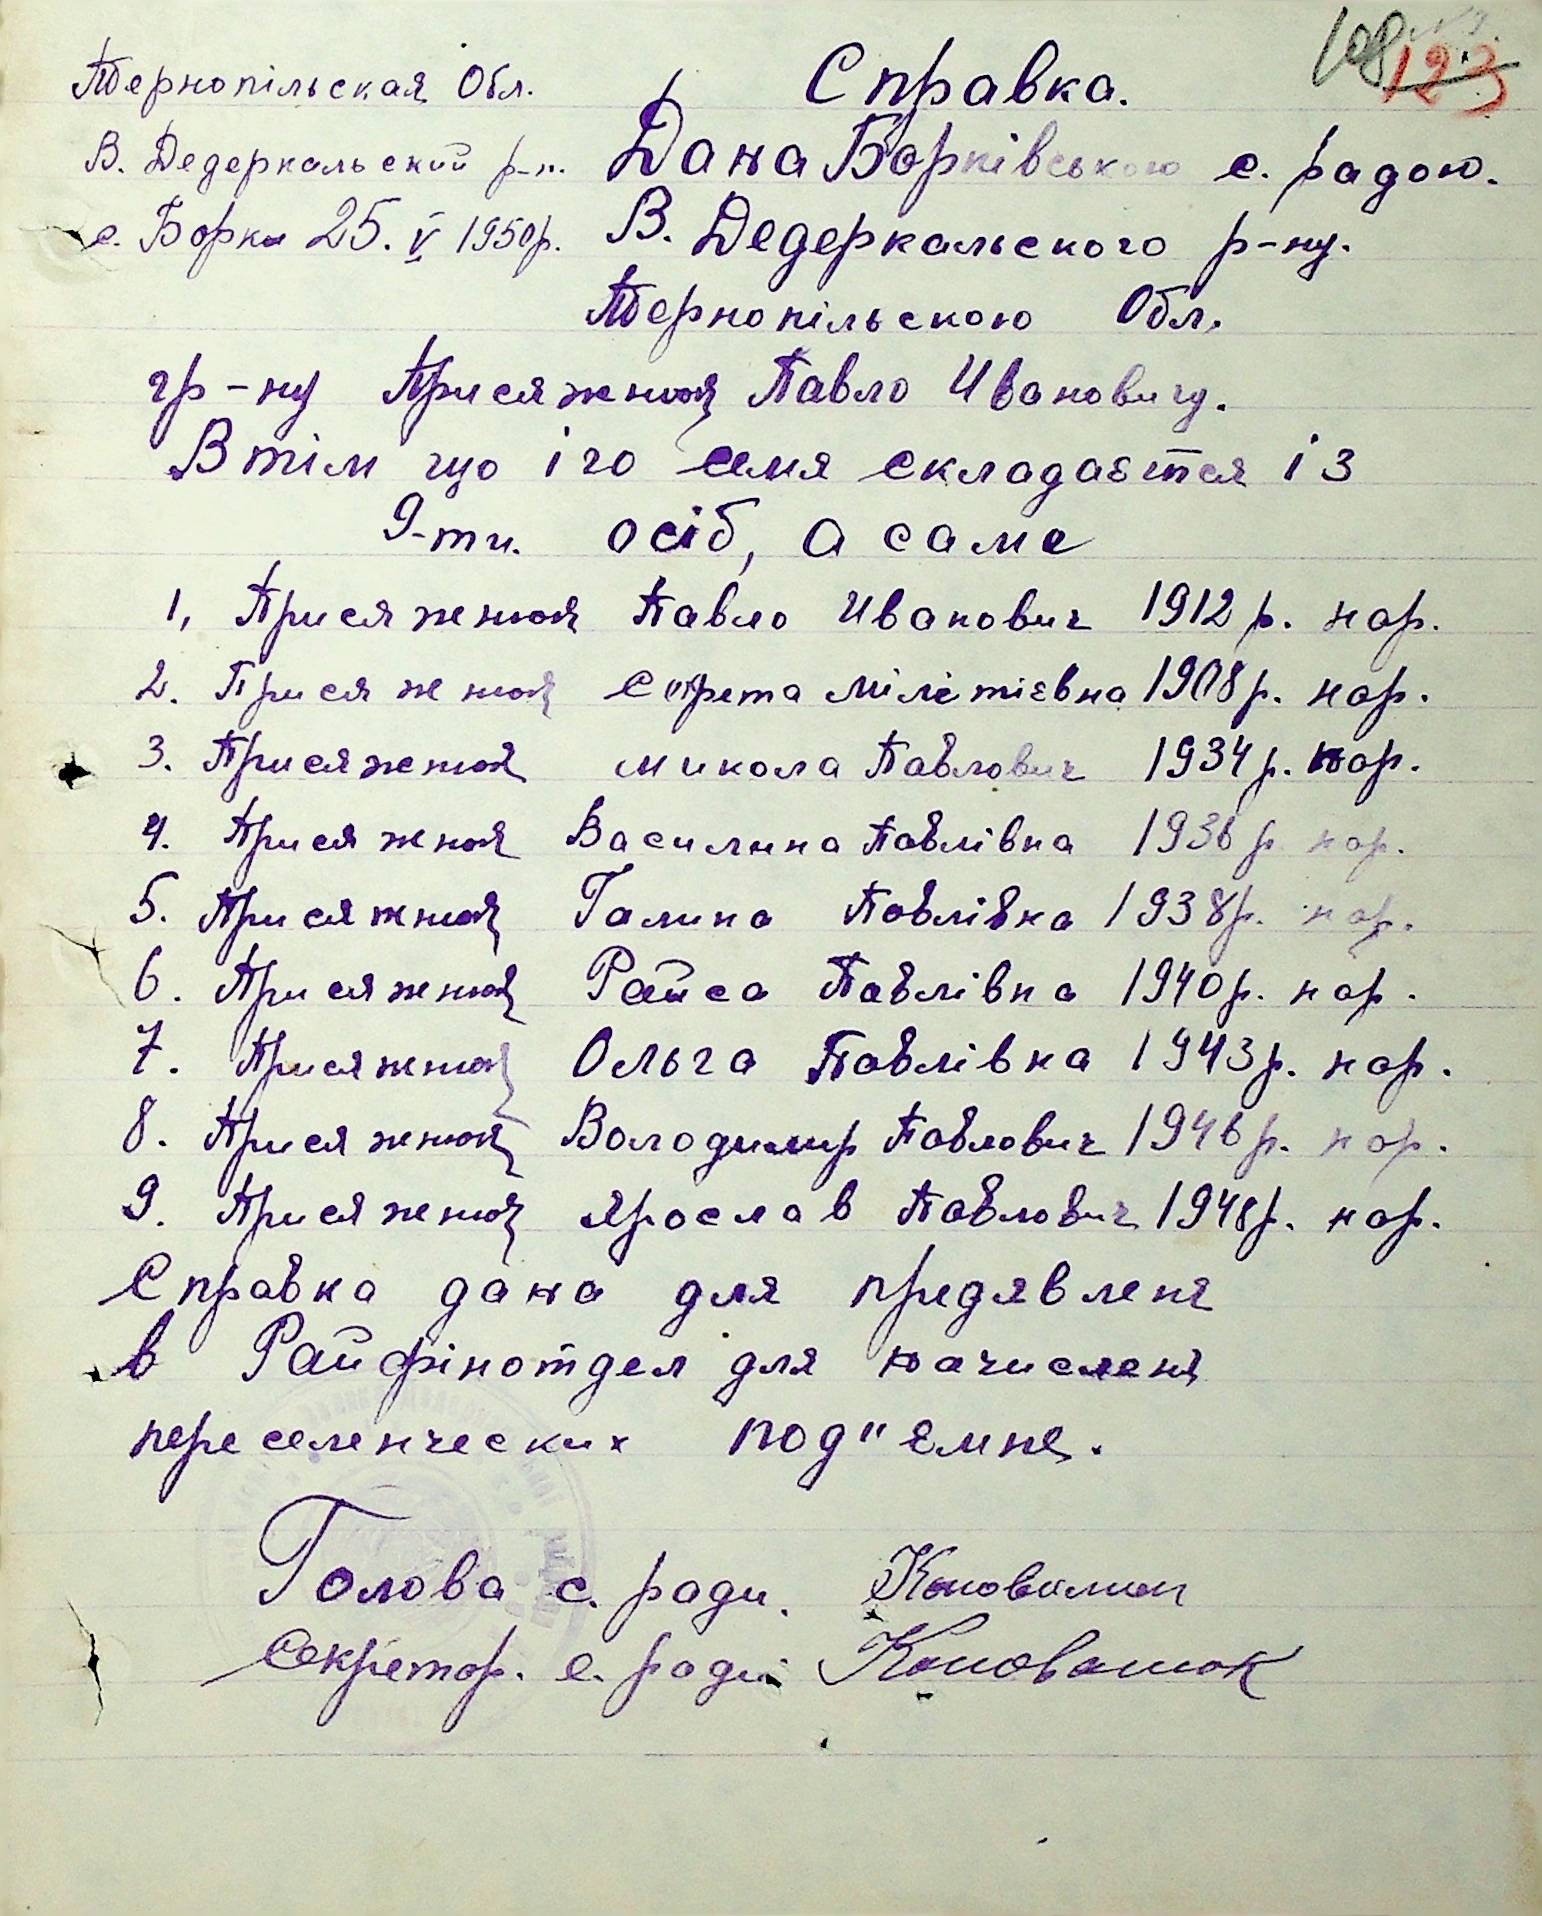 108 123
Тернопільская Обл.
Справка.
В. Дедеркальский р-н.
Дана Борківською с. радою.
с. Борки 25. V 1950р.
В. Дедеркальского р-ну.
Тернопільскою Обл.
гр-ну Присяжнюк Павло Ивановичу.
В тім що іго семя складаєтся із
9-ти. осіб, а саме
1, Присяжнюк Павло Иванович 1912 р. нар.
2. Присяжнюк мілетієвна 1908р. нар.
3. Присяжнюк микола Павлович 1934 р. нар.
4. Присяжнюк Василина Павлівна 1936 р нар.
5. Присяжнюк Галина Павлівна 1938р. нар.
6. Присяжнюк Раиса Павлівна 1940р. нар.
7. Присяжнюк Ольга Павлівна 1943р. нар.
8. Присяжнюк Володимир Павлович 1946р. нар.
9. Присяжнюк Ярослав Павлович 1948р. нар.
Справка дана для предявленя
в Райфінотдел для начисленя
переселенческих под"ємне.
Голова с. ради. Коновалюк
Секретар. с. ради Коновалюк